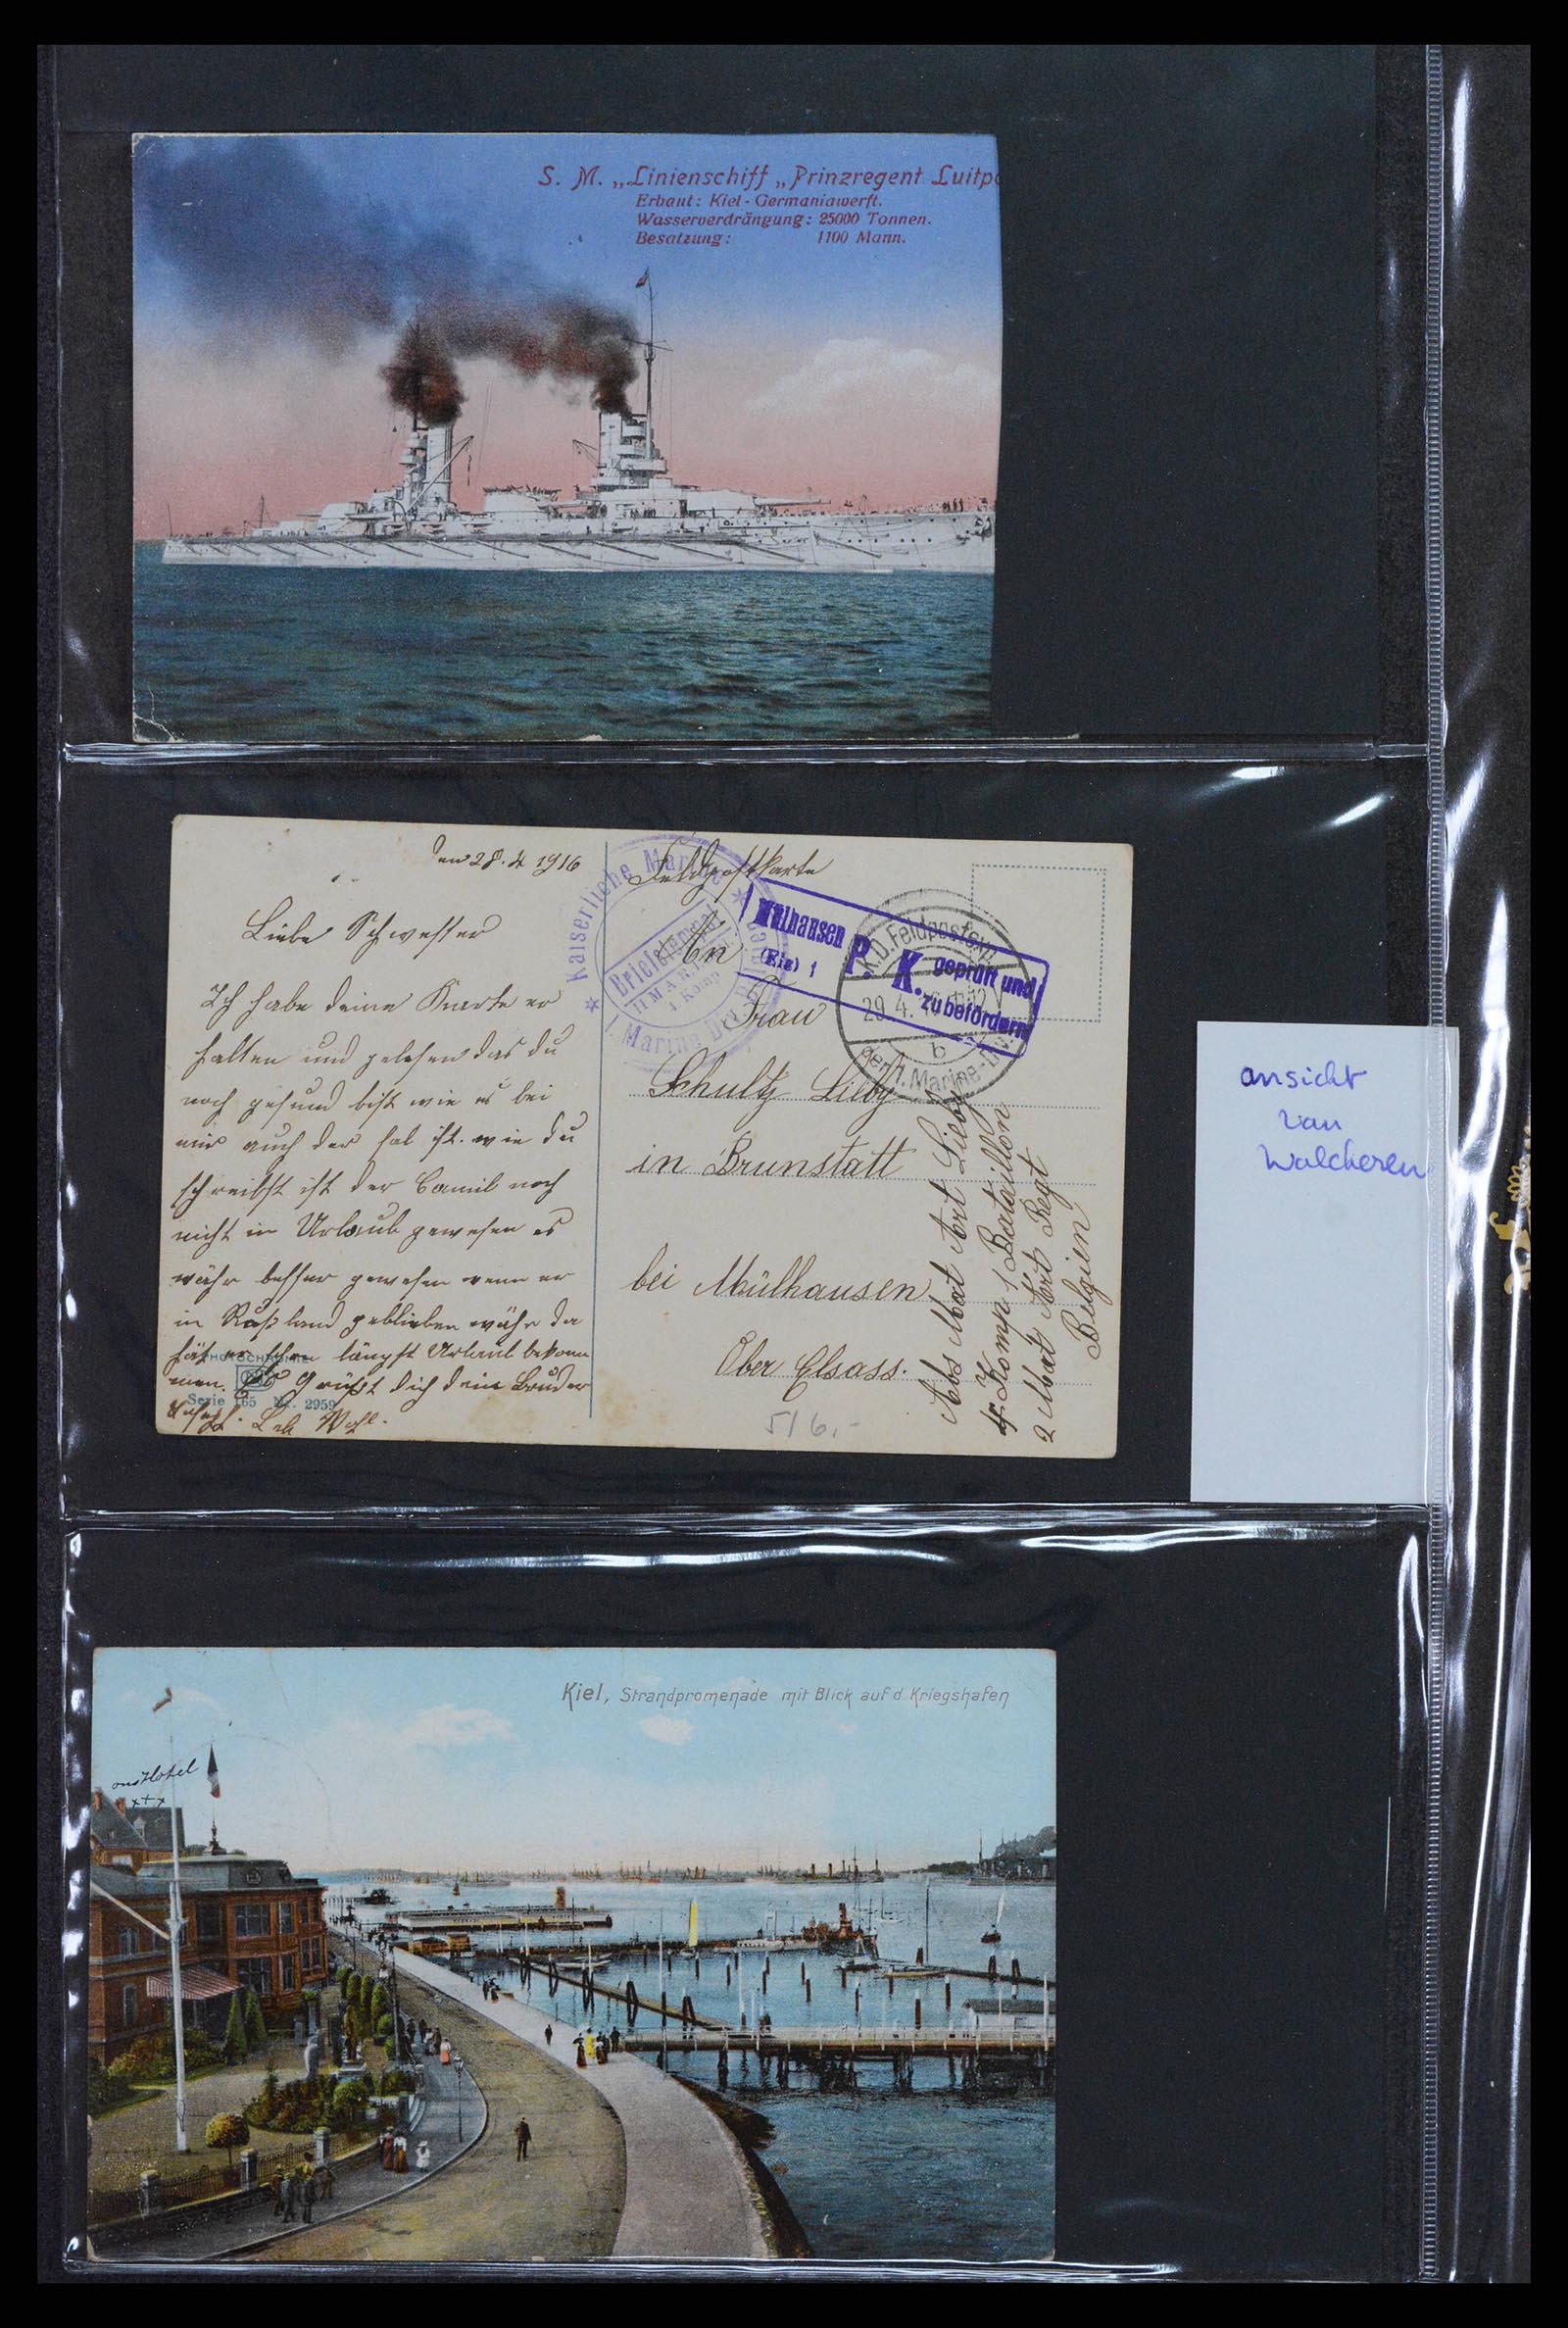 S. M. „Linienschiff „Prinzregent Luitpo
Erbaut: Kiel - Germaniawerft.
Wasserverdrängung: 25000 Tonnen.
Besatzung: 1100 Mann.
Den 28. 4 1916
Liebe Schwester
Ich habe deine Karte er
halten und gelesen das du
noch gesund bist wie es bei
mir auch der fal ist. wie du
schreibst ist der Camil noch
nicht in Urlaub gewesen es
währ besser gewesen wenn er
in Rußland geblieben währ da
hät er schon längst Urlaub bekom
men. Es Grüßt dich dein Bruder
Leb Wohl.
PHOTOCHROMIE
Serie 165 Nr. 2959
Feldpostkarte
An
Frau
Schultz Lilby
in Brunstatt
bei Mülhausen
Ober Elsass.
5/6,-
Kaiserliche Marine
Briefstempel
II MA
4 Komp
I. Marine Div
Mülhausen
(Els) 1
P. K.
geprüft und
zu befördern
K.D. Feldpostexp.
29.4.
b
der II. Marine-Div.
Abs Mat Art Lilby
4. Komp 1 Bataillon
2 Mat Art Regt
Belgien
ansicht
van
Walcheren
Kiel, Strandpromenade mit Blick auf d. Kriegshafen
ons Hotel
x+x